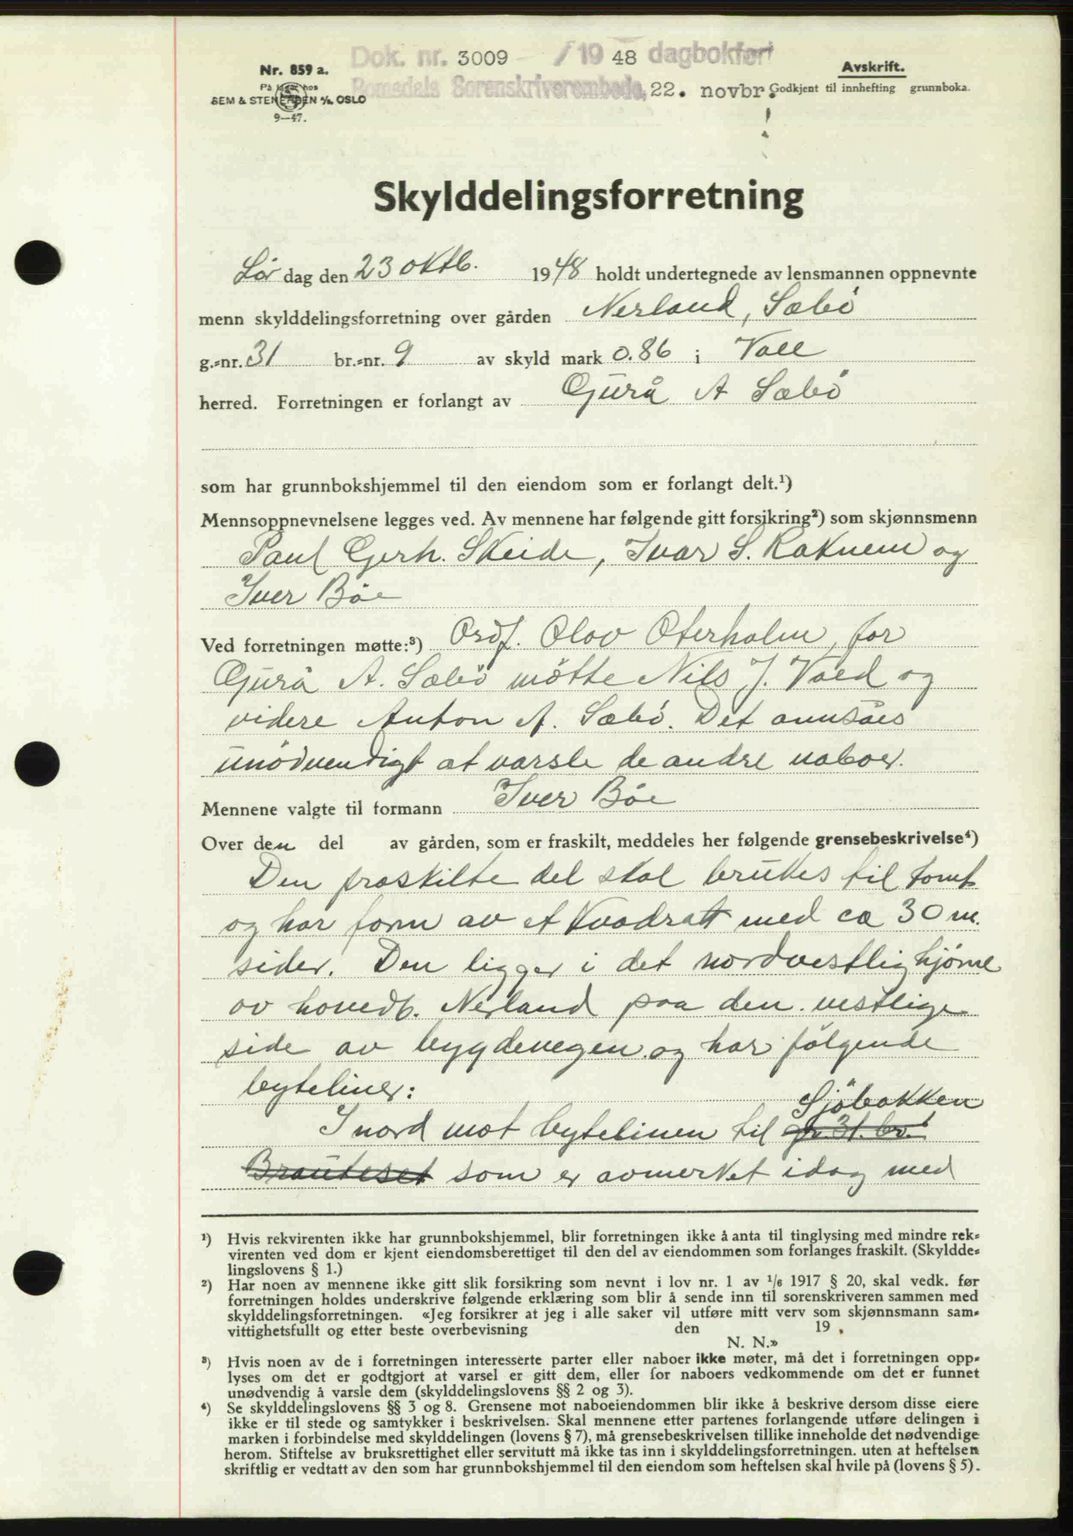 Dok. nr. 3009 / 19 48 dagbokført
Romsdals Sorenskriverembede, 22. novbr.
Nr. 859 a.
På lager hos
SEM & STENERSEN A/S, OSLO
9—47.
Avskrift.
Godkjent til innhefting grunnboka.
Skylddelingsforretning
Lør dag den 23 oktb. 1948 holdt undertegnede av lensmannen oppnevnte
menn skylddelingsforretning over gården Nerland, Sæbö
g.-nr. 31 br.-nr. 9 av skyld mark 0.86 i Voll
herred. Forretningen er forlangt av Gurå A Sæbö
som har grunnbokshjemmel til den eiendom som er forlangt delt.¹)
Mennsoppnevnelsene legges ved. Av mennene har følgende gitt forsikring²) som skjønnsmenn
Paul Gerh. Skeide, Ivar S. Raknem og
Iver Böe
Ved forretningen møtte:³) Ordf. Olov Oterholm, for
Gurå A. Sæbö mötte Nils J. Vold og
videre Anton A. Sæbö. Det annsåes
unödvendigt at varsle de andre naboer.
Mennene valgte til formann Iver Böe
Over den del av gården, som er fraskilt, meddeles her følgende grensebeskrivelse⁴)
Den fraskilte del skal brukes til tomt
og har form av et kvadratt med ca 30 m.
sider. Den ligger i det nordvestlig hjörne
av hovedb. Nerland paa den vestlige
side av bygdevegen og har fölgende
byteliner:
Sjöbakken
I nord mot bytelinen til gr. 31. br.
Brauteset som er avmerket idag med
¹) Hvis rekvirenten ikke har grunnbokshjemmel, blir forretningen ikke å anta til tinglysing med mindre rek-
virenten ved dom er kjent eiendomsberettiget til den del av eiendommen som forlanges fraskilt. (Skyldde-
lingslovens § 1.)
²) Har noen av mennene ikke gitt slik forsikring som nevnt i lov nr. 1 av 1/6 1917 § 20, skal vedk. før
forretningen holdes underskrive følgende erklæring som blir å sende inn til sorenskriveren sammen med
skylddelingsforretningen. «Jeg forsikrer at jeg i alle saker vil utføre mitt verv som skjønnsmann sam-
vittighetsfullt og etter beste overbevisning den 19 .
N. N.»
³) Hvis noen av de i forretningen interesserte parter eller naboer ikke møter, må det i forretningen opp-
lyses om det er godtgjort at varsel er gitt dem, eller for naboers vedkommende om det er funnet
unødvendig å varsle dem (skylddelingslovens §§ 2 og 3).
⁴) Se skylddelingslovens §§ 3 og 8. Grensene mot naboeiendommen blir ikke å beskrive dersom disse eiere
ikke er til stede og samtykker i beskrivelsen. Skal mennene etter partenes forlangende utføre delingen i
marken i forbindelse med skylddelingen (lovens § 7), må grensebeskrivelsen tillike inneholde det nødvendige
herom. Stiftelse av bruksrettighet eller servitutt må ikke tas inn i skylddelingsforretningen, uten at heftelsen
skriftlig er vedtatt av den som har grunnbokshjemmel til den eiendom som heftelsen skal hvile på (lovens § 5).